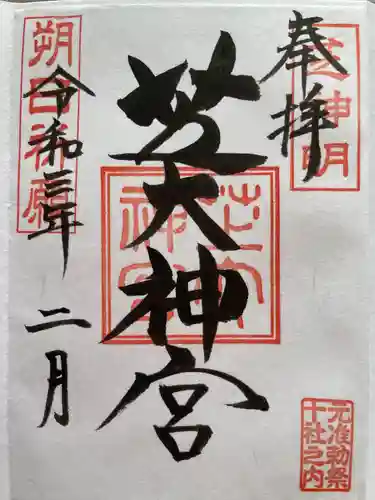 奉拝
芝神明
芝大神宮
芝大
神宮
元准勅祭
十社之内
朔日祈願
令和三年
二月